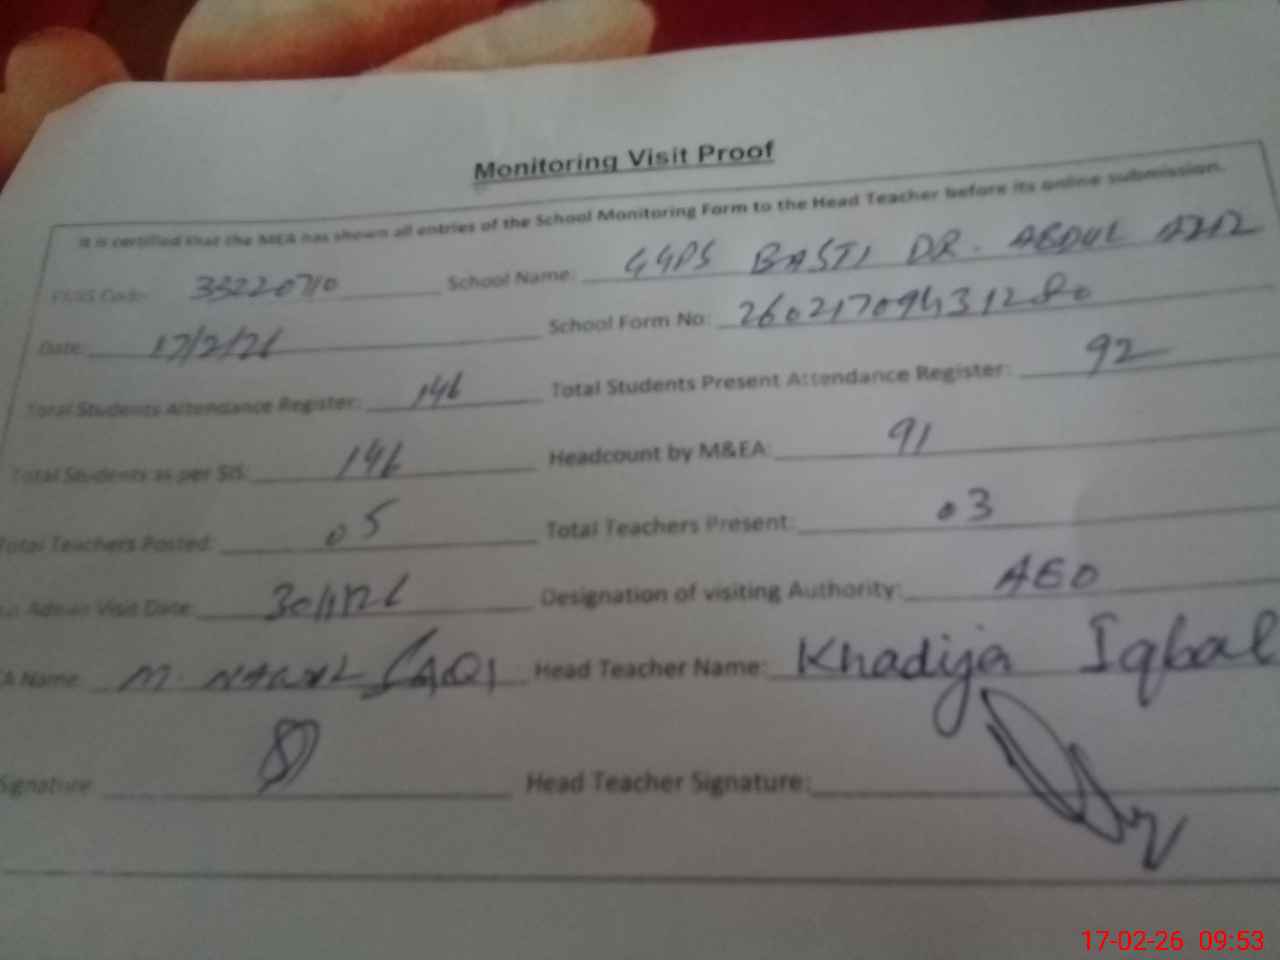 Monitoring Visit Proof
It is certified that the MEA has shown all entries of the School Monitoring Form to the Head Teacher before its online submission.
Code: 33220710 School Name: GGPS BASTI DR. ABDUL AZIZ
Date: 17/2/26 School Form No: 260217094312
Total Students Attendance Register: 146 Total Students Present Attendance Register: 92
Total Students as per SIS: 146 Headcount by M&EA: 91
Total Teachers Posted: 05 Total Teachers Present: 03
Admin Visit Date: 30/1/26 Designation of visiting Authority: AEO
A Name: M. Head Teacher Name: Khadija Iqbal
Signature Head Teacher Signature:
17-02-26 09:53